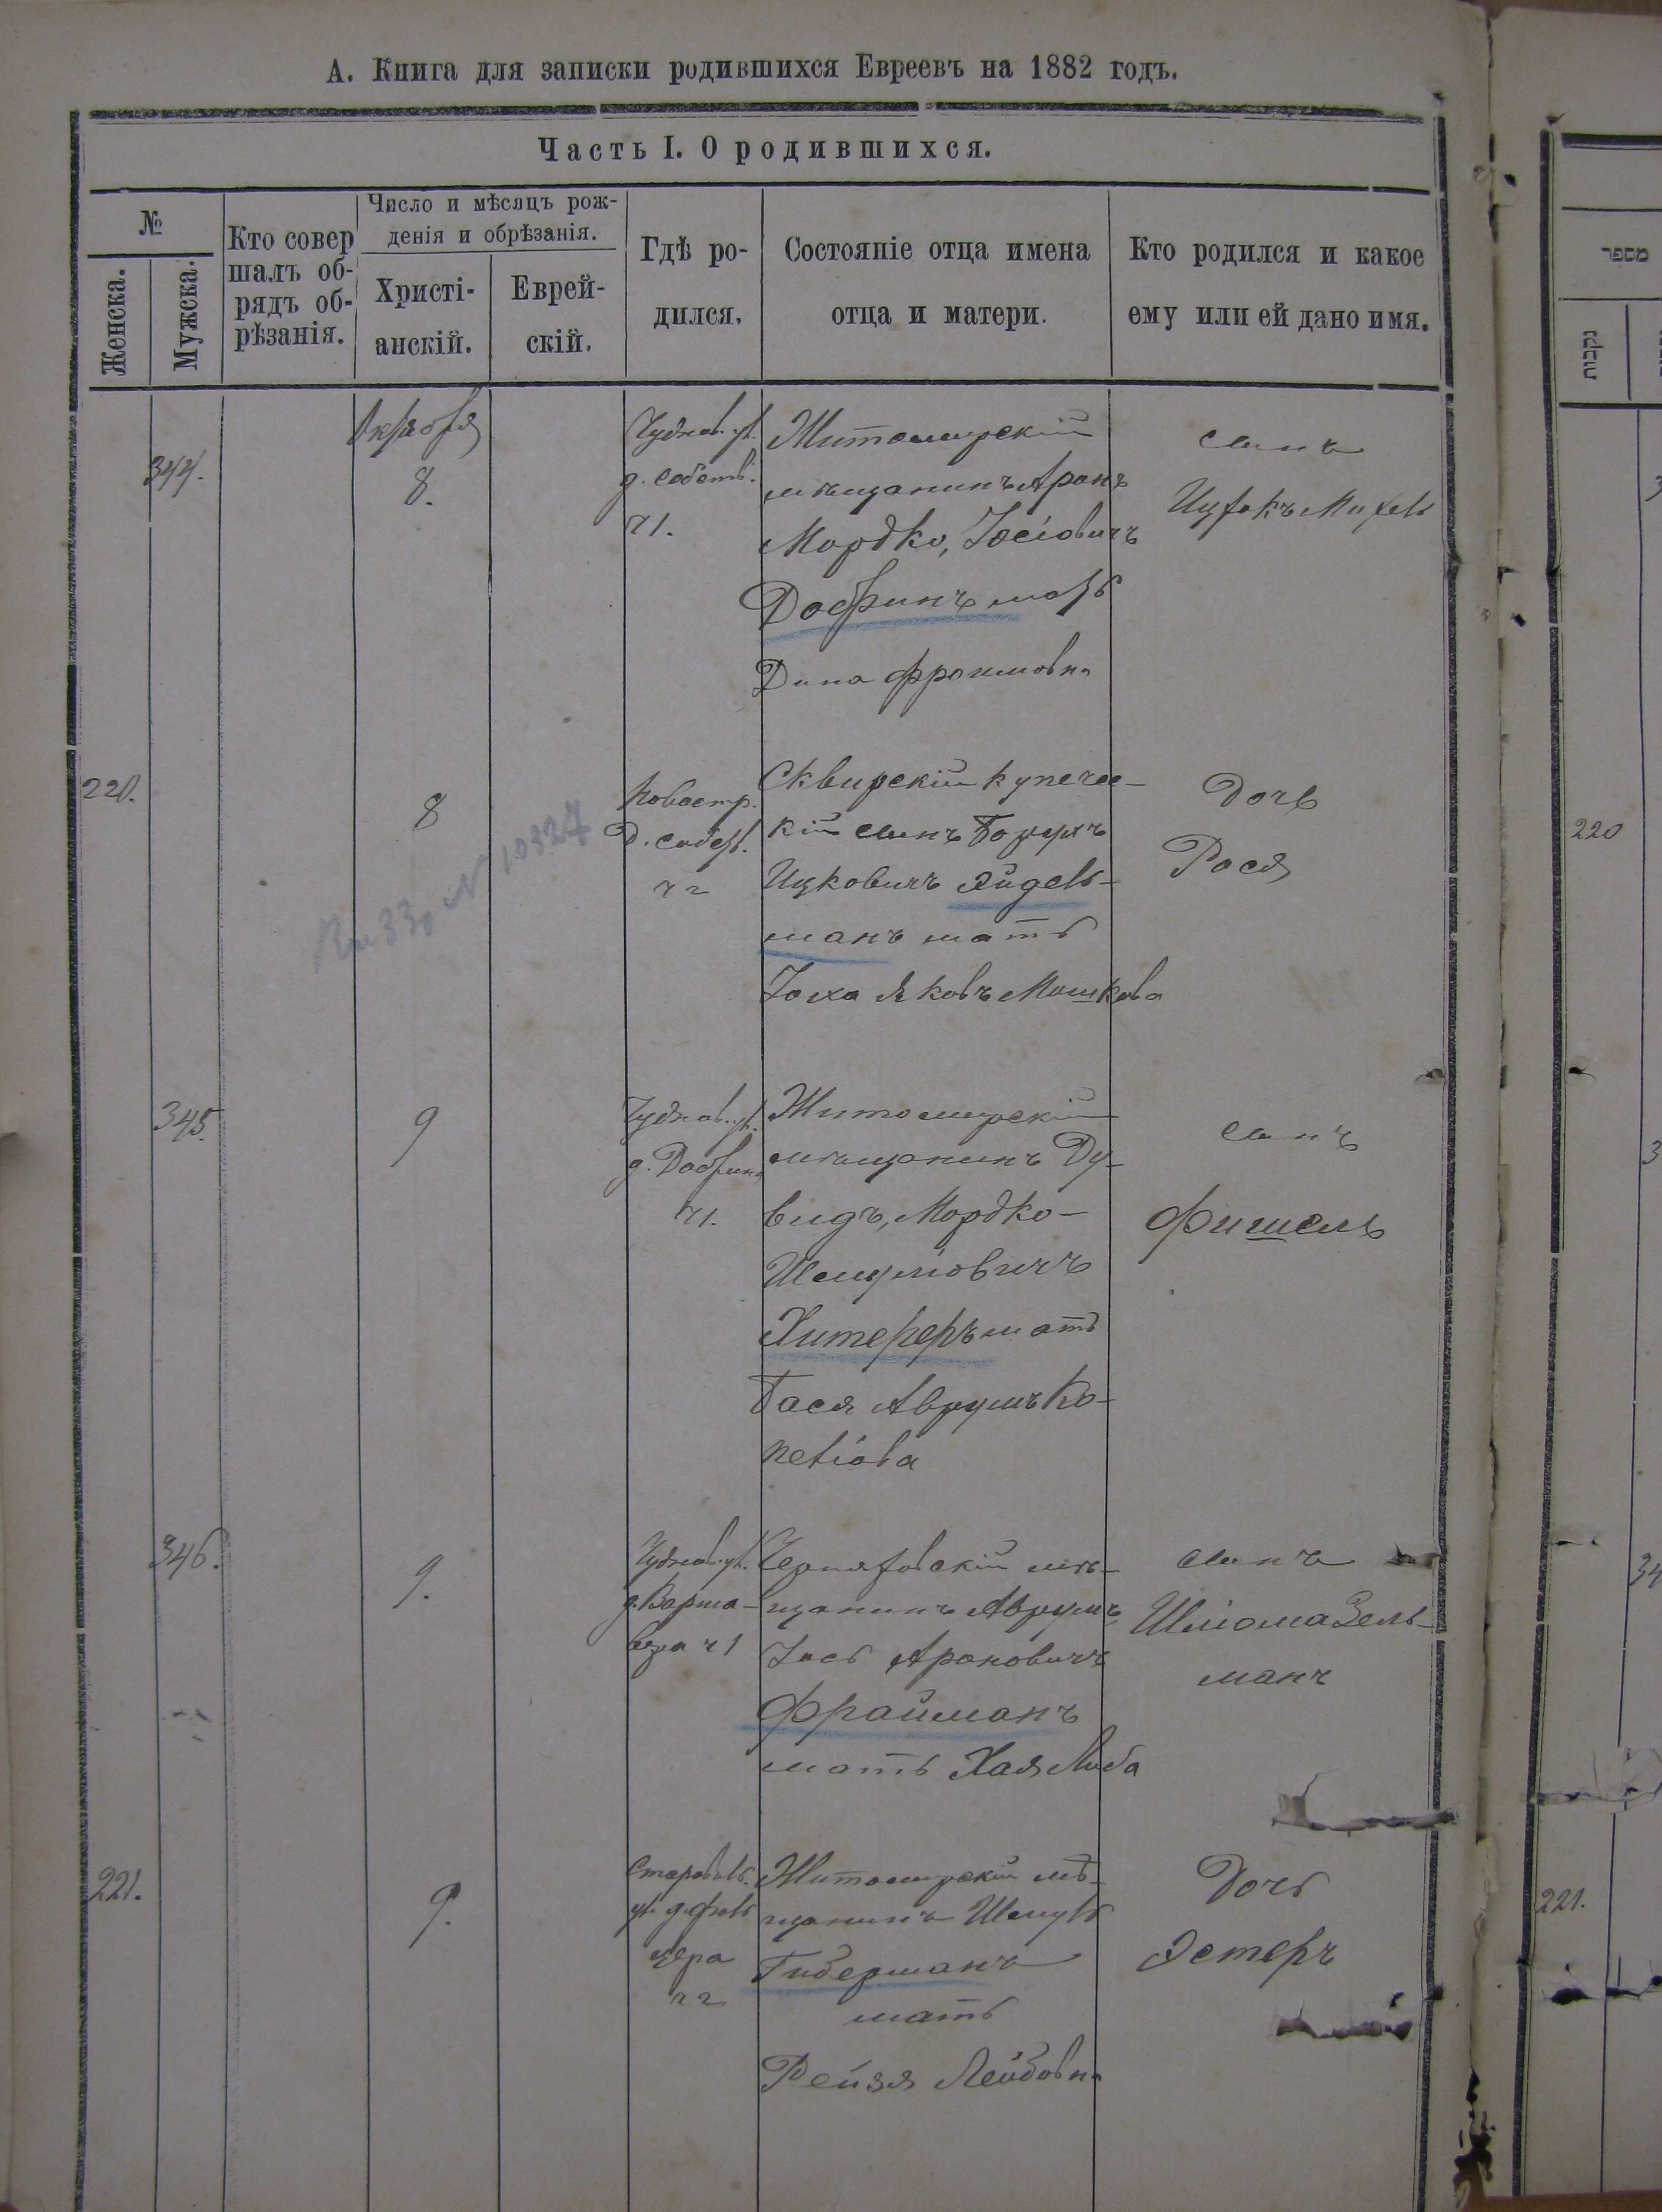 А. Книга для записки родившихся Евреевъ на 1882 годъ.
Часть I. О родившихся.
№
Женска.
Мужска.
Кто совер
шалъ об-
рядъ об-
рѣзанія.
Число и мѣсяцъ рож-
денія и обрѣзанія.
Христі-
анскій.
Еврей-
скій.
Гдѣ ро-
дился.
Состояніе отца имена
отца и матери.
Кто родился и какое
ему или ей дано имя.
344.
Октября
8.
Чуднов. ул.
д. собств.
ч 1.
Житомирскій
мѣщанинъ Аронъ
Мордко, Іосіовичъ
Добринъ мать
Дина Фроимовна
сынъ
Ицхокъ Михель
220.
8
Новостр.
д. собст.
ч 2
Сквирскій купечес-
кій сынъ Борухъ
Ицковичъ Эйдель-
манъ мать
Яковъ Мошкова
Дочь
Рося
№ 10324
345.
9
Чуднов. ул.
д. Добрин
ч 1.
Житомирскій
мѣщанинъ Ду-
видъ, Мордко-
Шмулiовичъ
Хитереръ мать
Бася Аврумъ Ко-
пеліова
сынъ
Фишель
346.
9.
Чуднов. ул.
д. Варша-
ч 1
Черняховскій мѣ-
щанинъ Аврумъ
Іось Ароновичъ
Фрайманъ
мать Хая Либа
сынъ
Шліома Зель-
манъ
221.
9.
ул. д.
ч 2
Житомирскій мѣ-
щанинъ Шмуль
Гиберманъ
мать
Рейзя Лейбовна
Дочь
Эстеръ
מספר
נקבות
220
221.